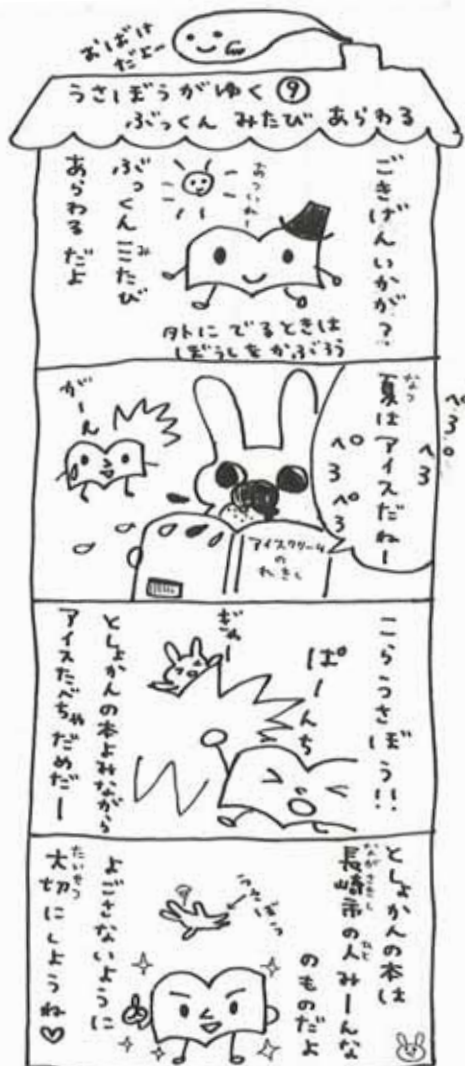 おばけ
だよー
うさぼうがゆく⑨
ぶっくん みたび あらわる
ごきげんいかが？
あついねー
ぶっくん三たび
み
あらわるだよ
外にでるときは
ぼうしをかぶろう
夏はアイスだねー
なつ
ペろ
ペろ
ペろ
アイスクリーム
の
れきし
がーん
こらうさぼう!!
ぱーんち
ぎゃー
としょかんの本よみながら
アイスたべちゃだめだー
としょかんの本は
長崎市の人みーんな
ながさきし
ひと
のものだよ
うさぼう
よごさないように
大切にしようね♡
たいせつ